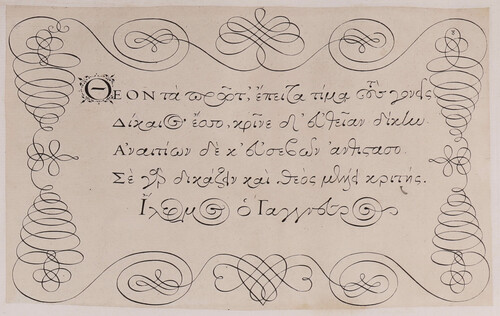 ΘΕΟΝ τὰ πρῶτ', ἔπειτα τίμα σοὺς γονεῖς
Δίκαιος ἔσο, κρῖνε δ' εὐθεῖαν δίκην.
Ἀναιτίων δὲ κ' εὐσεβῶν ἀνθίστασο.
Σὲ γὰρ δικάζειν καὶ θεὸς μέλλει κριτής.
ὁ